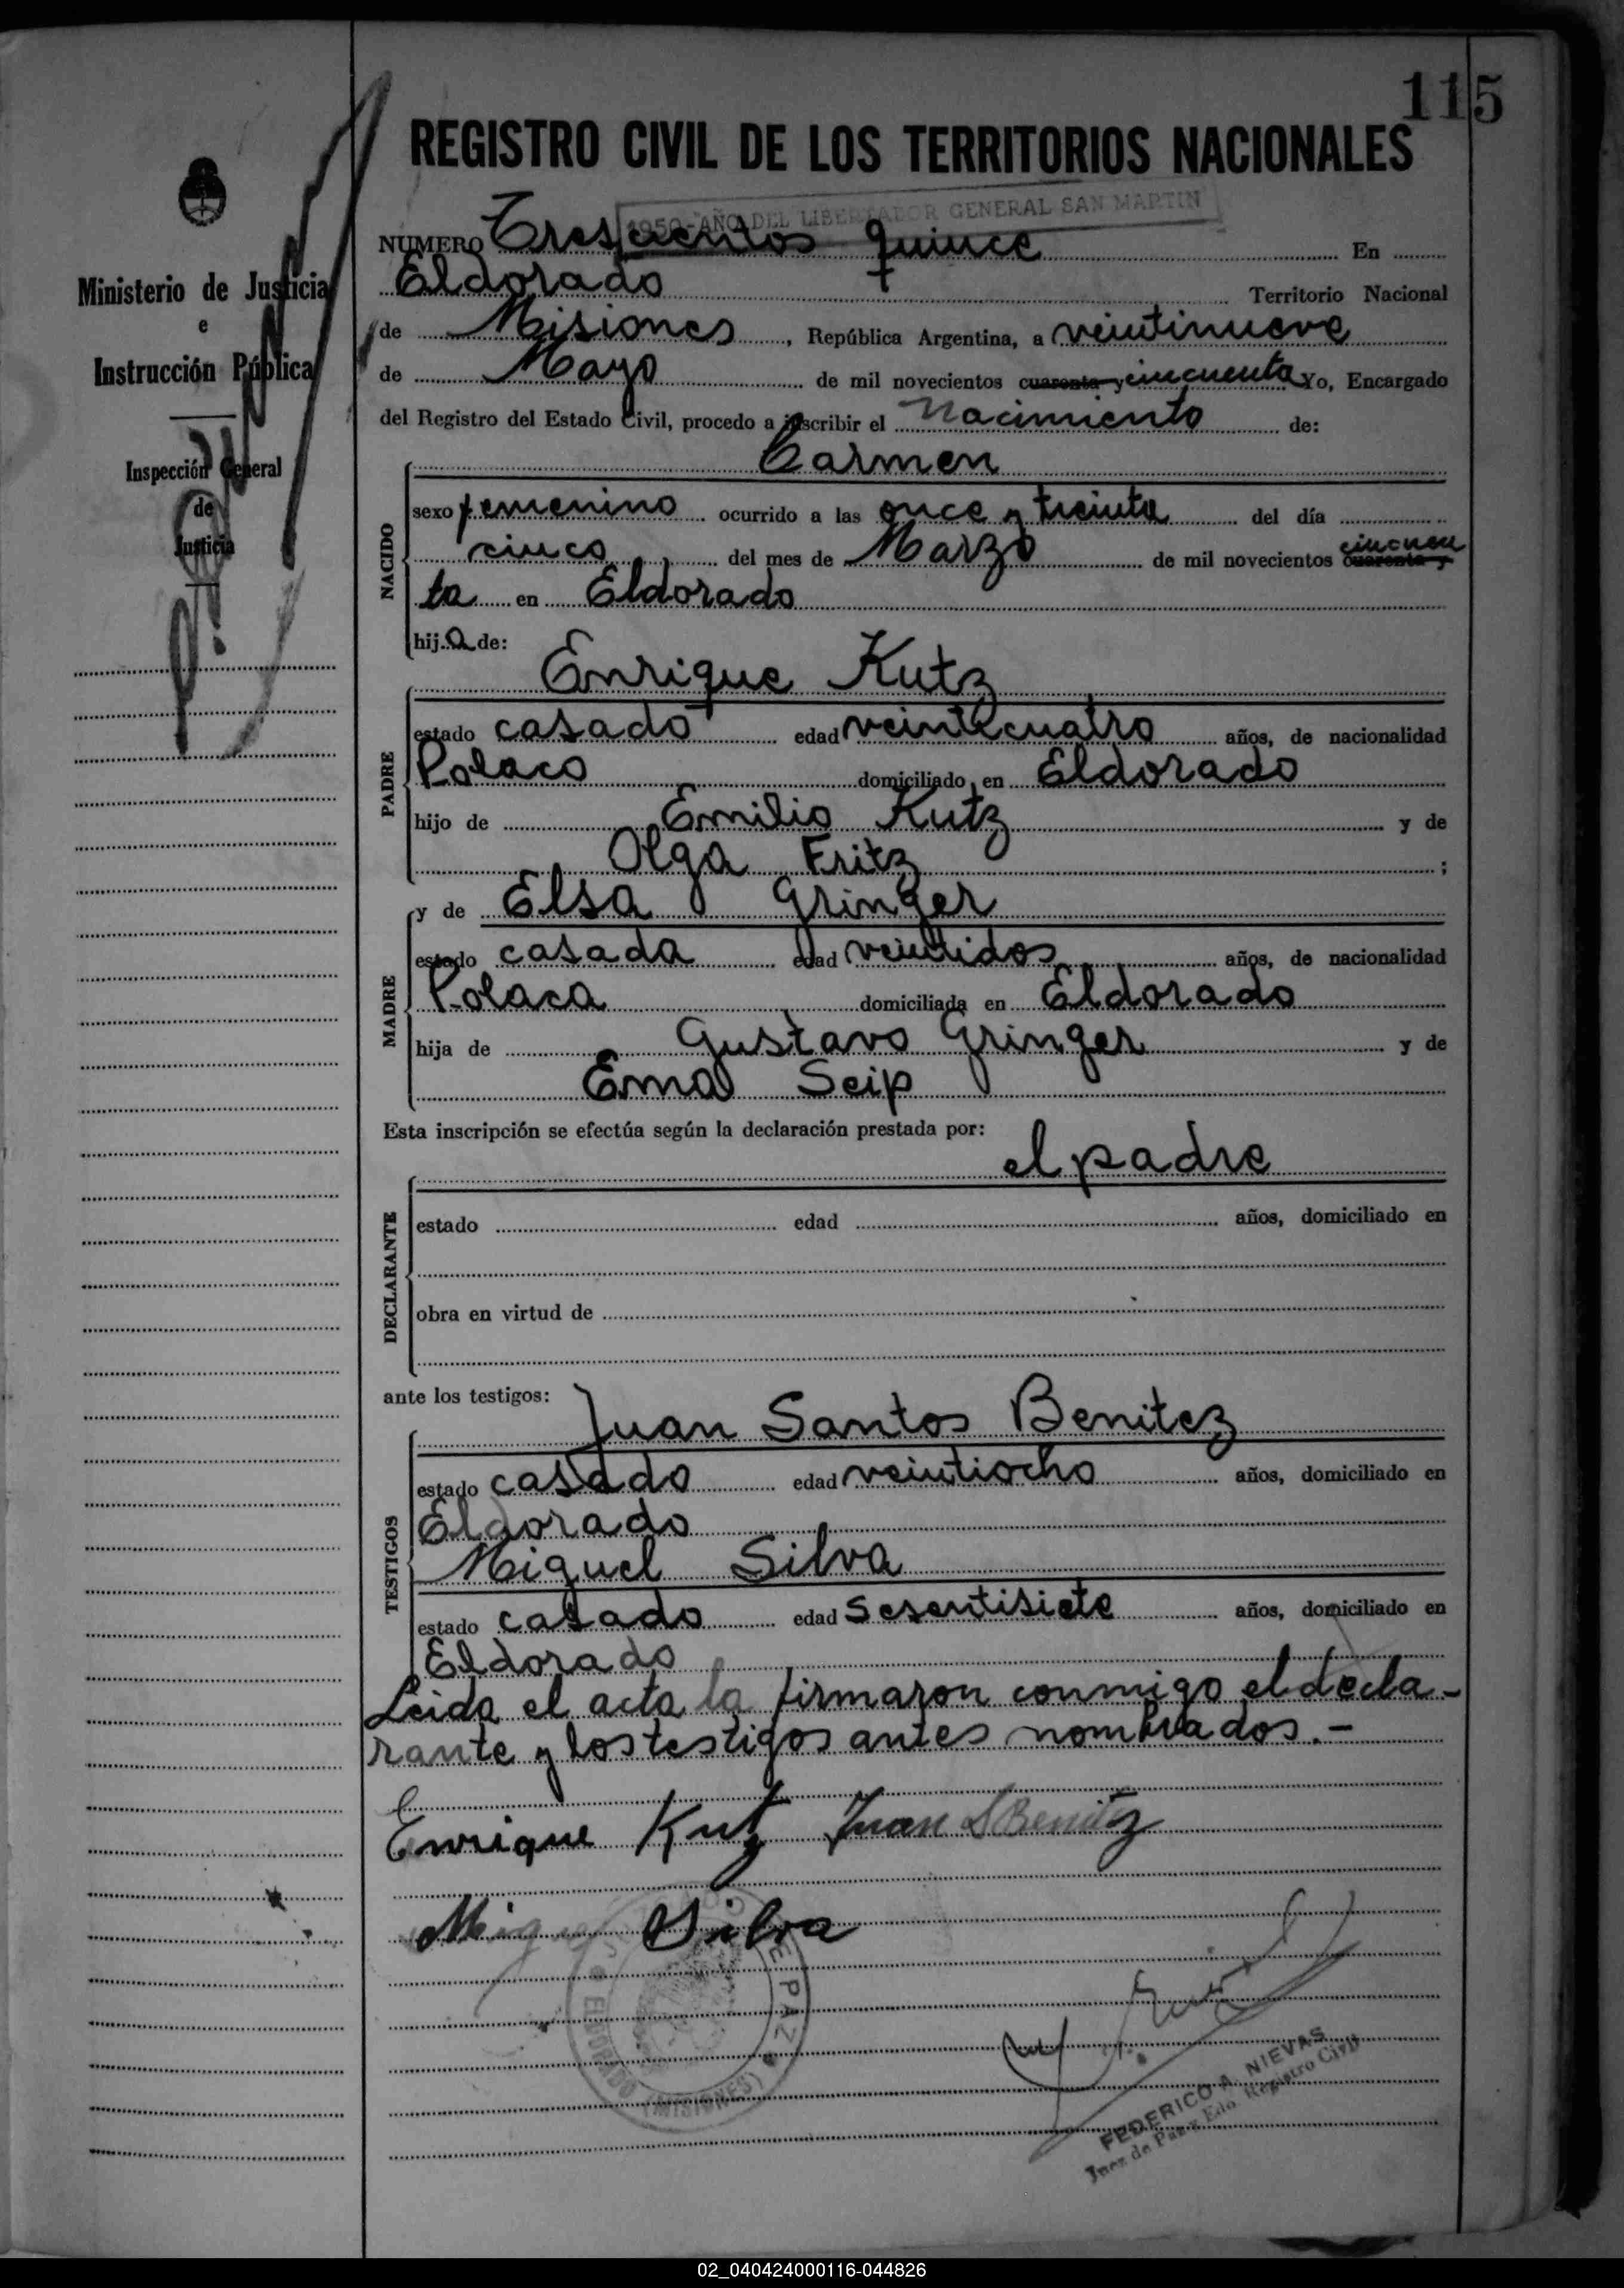 115
REGISTRO CIVIL DE LOS TERRITORIOS NACIONALES
1950-AÑO DEL LIBERTADOR GENERAL SAN MARTIN
Ministerio de Justicia
e
Instrucción Pública
Inspección General
de
Justicia
NUMERO Trescientos quince En
Eldorado Territorio Nacional
de Misiones, República Argentina, a veintinueve
de Mayo de mil novecientos cuarenta y cincuenta Yo, Encargado
del Registro del Estado Civil, procedo a inscribir el nacimiento de:
NACIDO
Carmen
sexo femenino ocurrido a las once y treinta del día
cinco del mes de Marzo de mil novecientos cuarenta y cincuen
ta en Eldorado
hija de:
PADRE
Enrique Kutz
estado casado edad veinticuatro años, de nacionalidad
Polaco domiciliado en Eldorado
hijo de Emilio Kutz y de
Olga Fritz ;
MADRE
y de Elsa Gringer
estado casada edad veintidos años, de nacionalidad
Polaca domiciliada en Eldorado
hija de Gustavo Gringer y de
Ema Seip
Esta inscripción se efectúa según la declaración prestada por:
el padre
DECLARANTE
estado edad años, domiciliado en
obra en virtud de
ante los testigos:
TESTIGOS
Juan Santos Benitez
estado casado edad veintiocho años, domiciliado en
Eldorado
Miguel Silva
estado casado edad sesentisiete años, domiciliado en
Eldorado
Leida el acta la firmaron conmigo el decla-
rante y los testigos antes nombrados.-
Enrique Kutz Juan S Benitez
Miguel Silva
DE PAZ
ELDORADO (MISIONES)
FEDERICO A. NIEVAS
Juez de Paz y Edo. Registro Civil
02_040424000116-044826